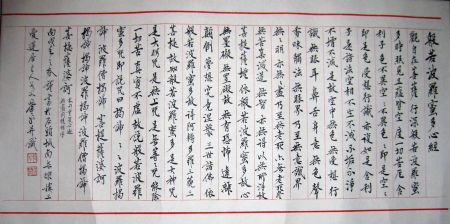 般若波羅蜜多心經
觀自在菩薩行深般若波羅蜜
多時照見五蘊皆空度一切苦厄舍
利子色不異空空不異色色即是空空
即是色受想行識亦復如是舍利
子是諸法空相不生不滅不垢不淨
不增不減是故空中無色無受想行
識無眼耳鼻舌身意無色聲
香味觸法無眼界乃至無意識界
無無明亦無無明盡乃至無老死亦無老死盡
無苦集滅道無智亦無得以無所得故
菩提薩埵依般若波羅蜜多故心
無罣礙無罣礙故無有恐怖遠離
顛倒夢想究竟涅槃三世諸佛依
般若波羅蜜多故得阿耨多羅三藐三
菩提故知般若波羅蜜多是大神咒
是大明咒是無上咒是無等等咒能除
一切苦真實不虛故說般若波羅
蜜多咒即說咒曰揭諦々々波羅揭
諦波羅僧揭諦菩提薩婆訶
揭諦揭諦波羅揭諦波羅僧揭諦
菩提薩婆訶